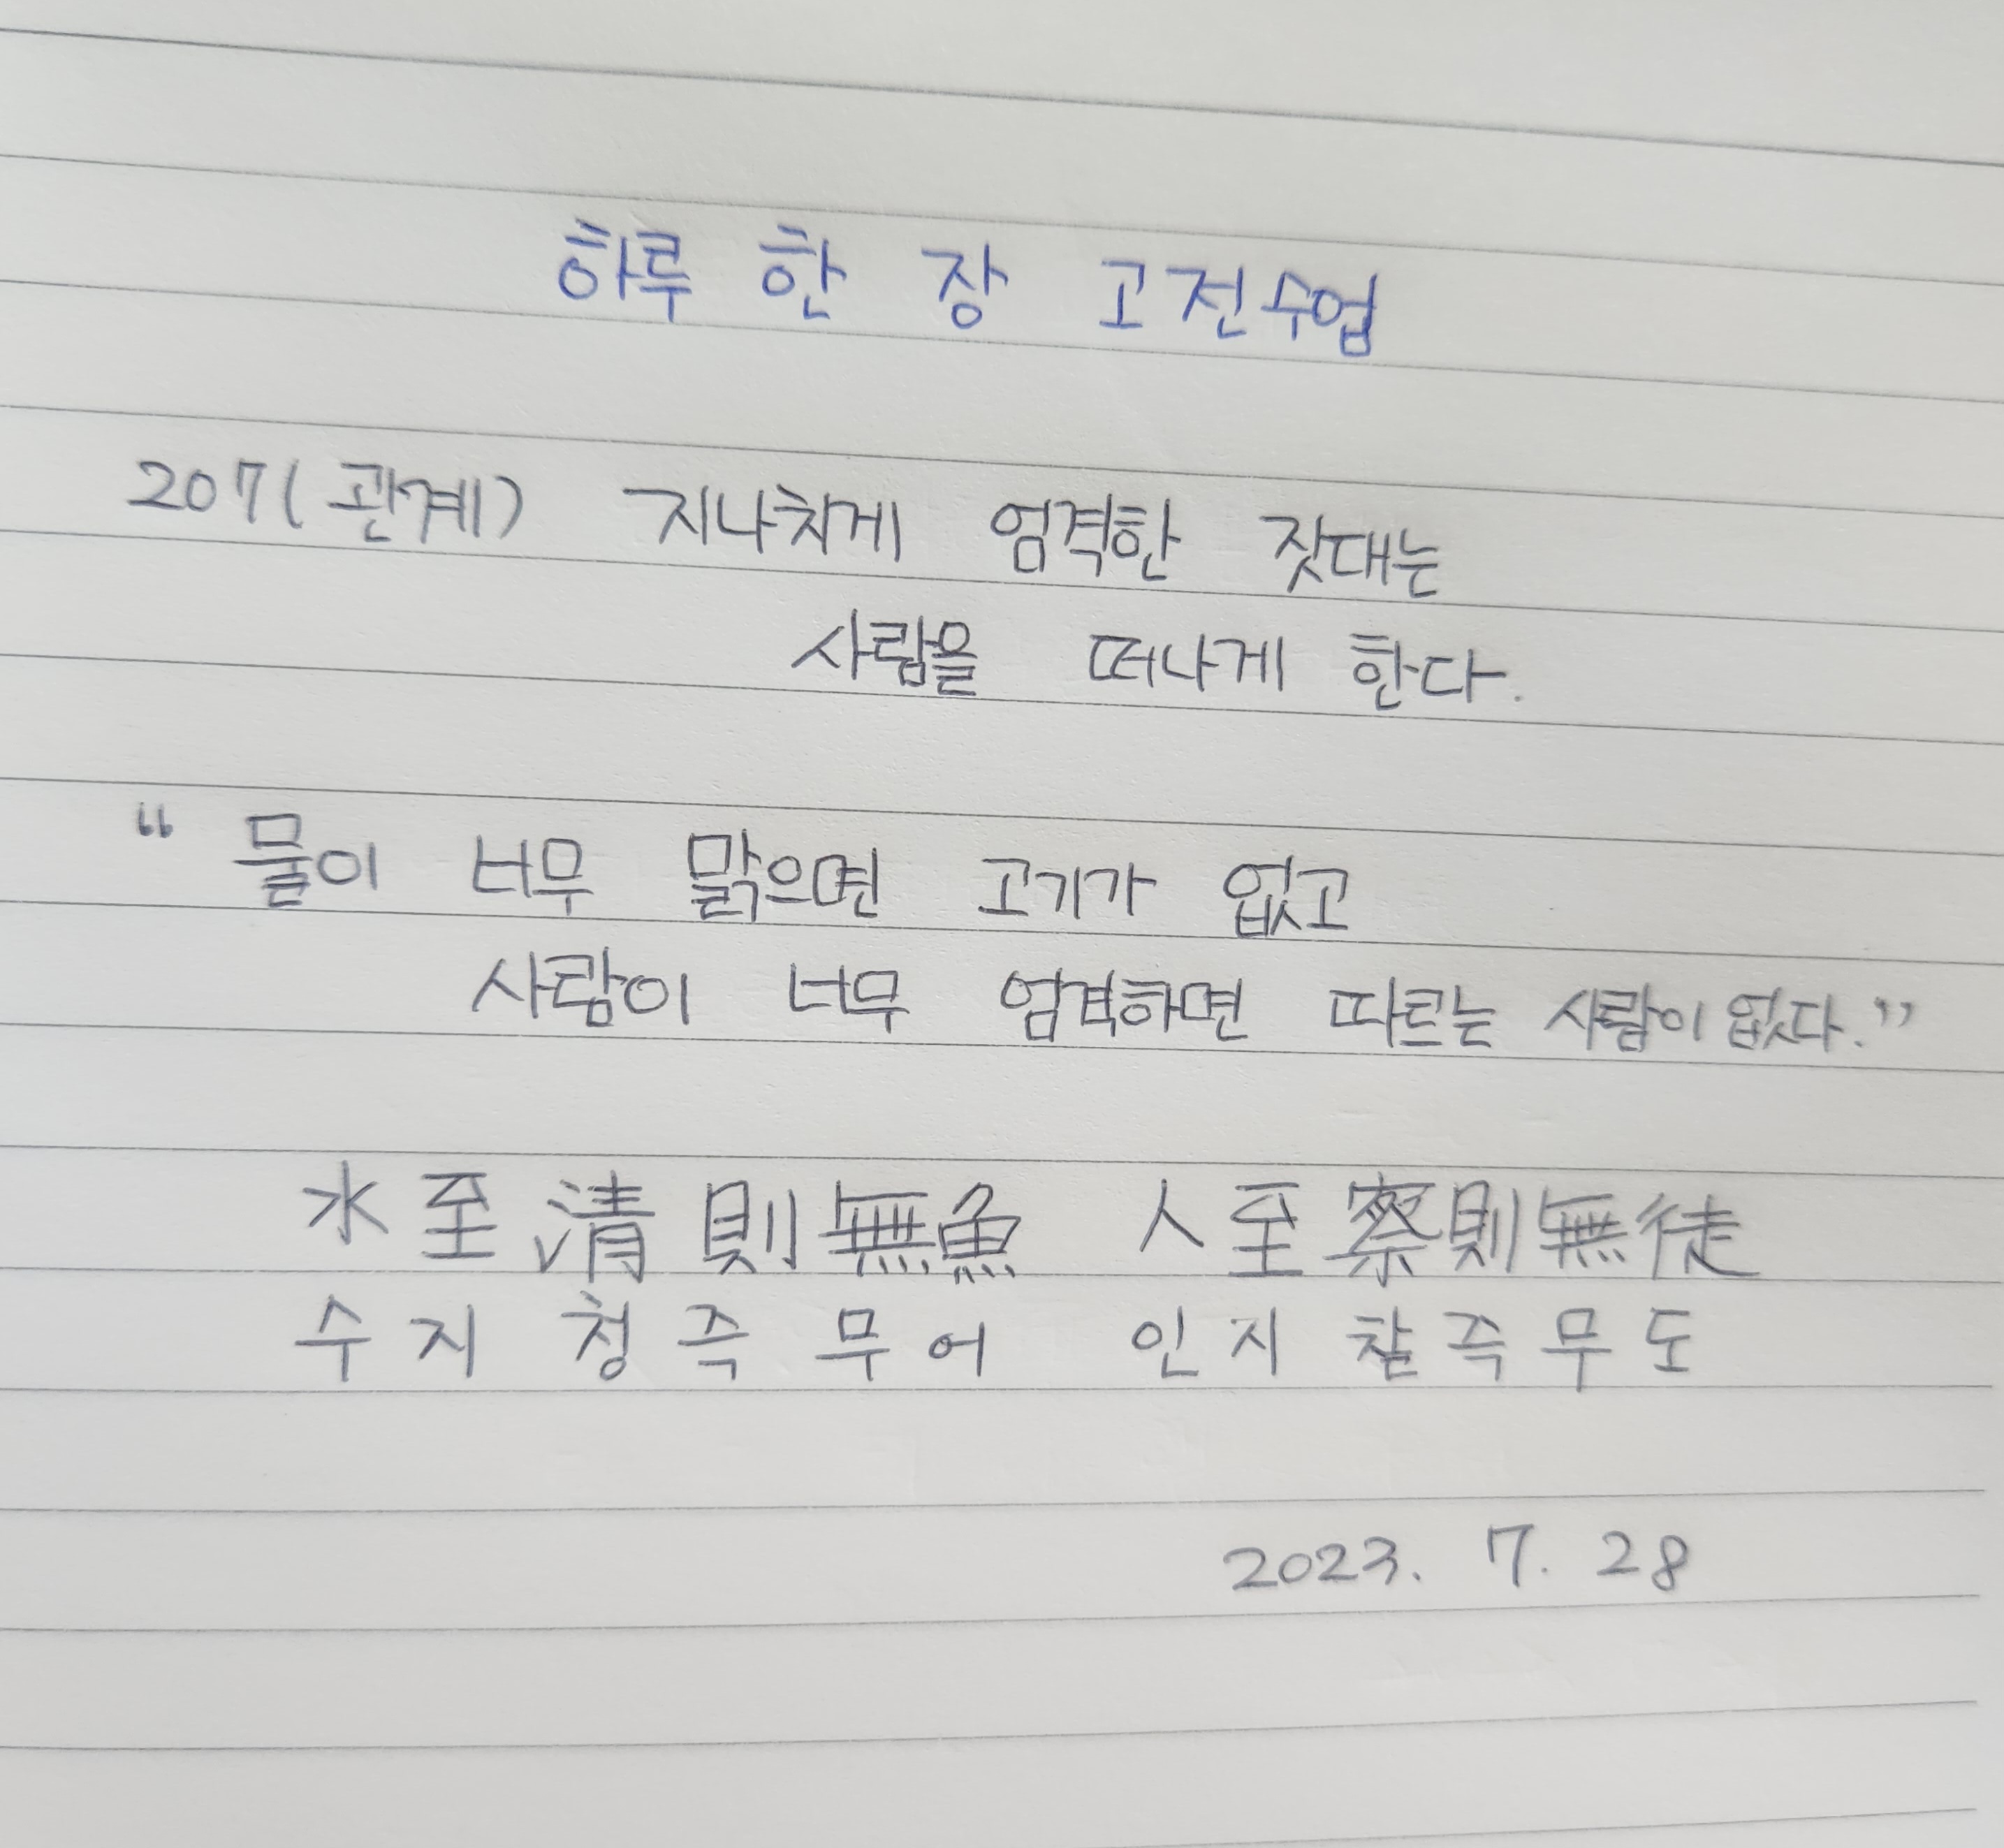 하루 한 장 고전수업
207(관계) 지나치게 엄격한 잣대는
사람을 떠나게 한다.
“물이 너무 맑으면 고기가 없고
사람이 너무 엄격하면 따르는 사람이 없다.”
水至清則無魚 人至察則無徒
수지청즉무어 인지찰즉무도
2023. 7. 28